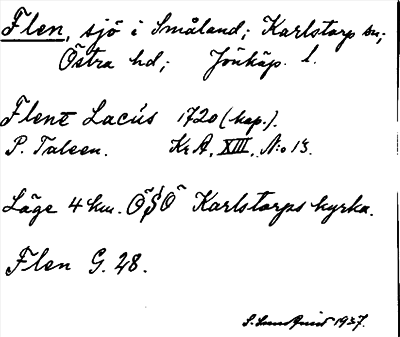 Flen, sjö i Småland; Karlstorp sn;
Östra hd; Jönköp. l.
Flenе Lacus 1720 (kap.).
P. Talsen. Kr A, XIII, No 13.
Läge 4 km. Ö S Ö Karlstorps kyrka.
Flen G. 28.
1937.